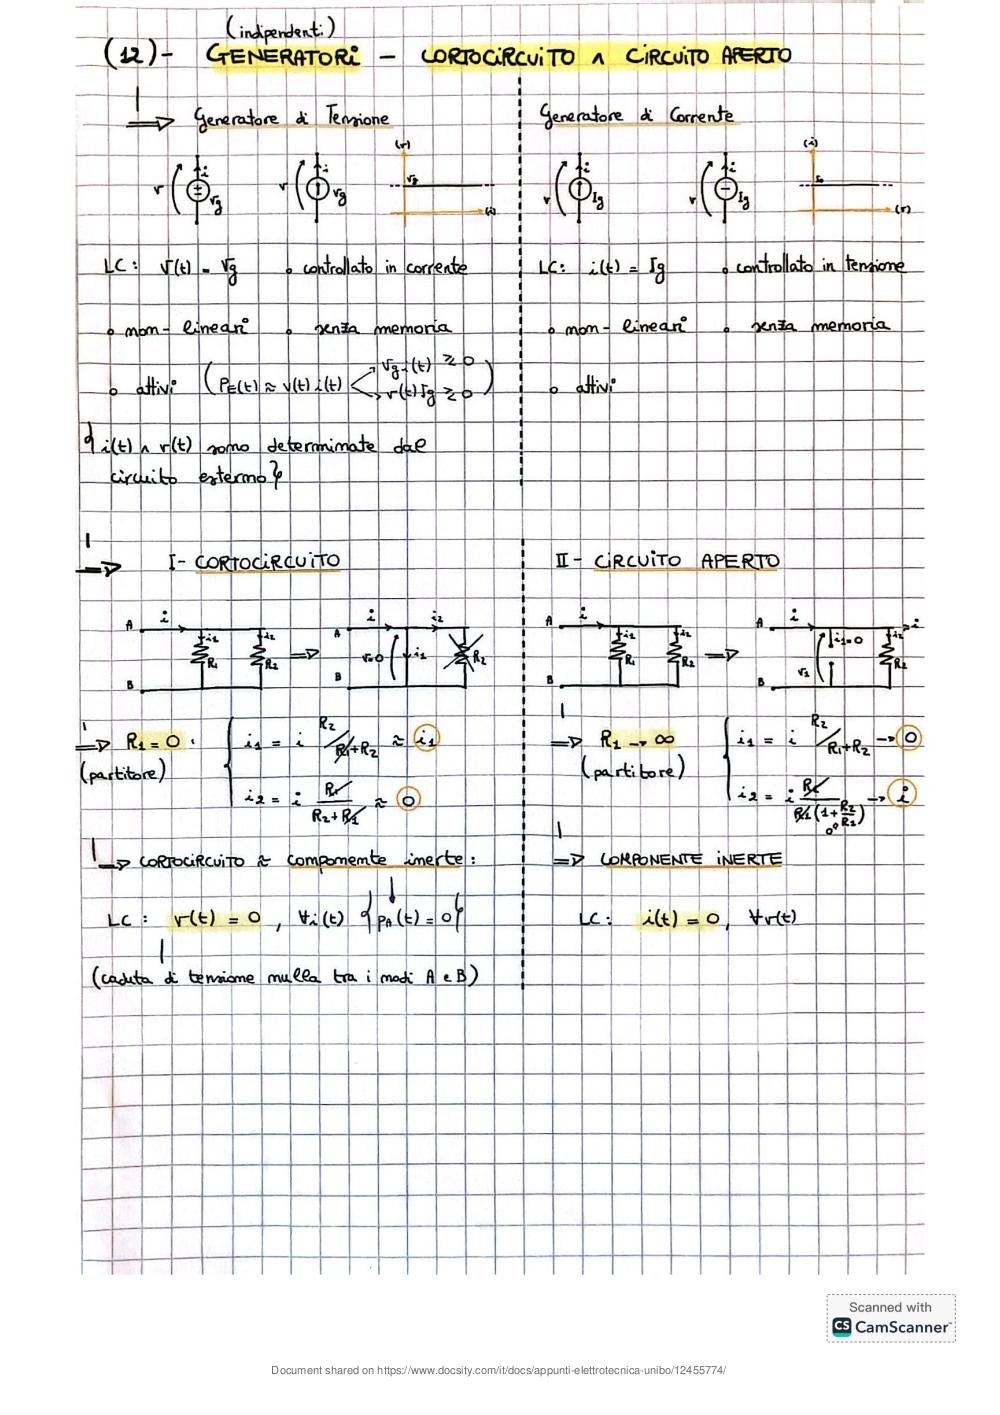 (indipendenti)
(12)- GENERATORI - CORTOCIRCUITO ∧ CIRCUITO APERTO
⇒ Generatore di Tensione
(v)
v i Vg
v i Vg
Vg
(i)
LC: V(t) = Vg • controllato in corrente
• non-lineari • senza memoria
• attivi (PE(t) ≈ v(t) i(t) < Vg i(t) ≷ 0
v(t) Ig ≷ 0)
{i(t) ∧ v(t) sono determinate dal
circuito esterno}
Generatore di Corrente
(i)
v i Ig
v i Ig
(v)
LC: i(t) = Ig • controllato in tensione
• non-lineari • senza memoria
• attivi
⇒ I- CORTOCIRCUITO
A i i1 R1 i2 R2 B ⇒ A i i2 v=0 i1 R2 B
⇒ R1 = 0 :
(partitore)
i1 = i R2/R1+R2 ≈ i1
i2 = i R1/R2+R1 ≈ 0
↳ CORTOCIRCUITO ≈ componente inerte:
LC: v(t) = 0, ∀i(t) {pA(t) = 0}
(caduta di tensione nulla tra i nodi A e B)
II- CIRCUITO APERTO
A i i1 R1 i2 R2 B ⇒ A i i1=0 i2 i v1 R2 B
⇒ R1 → ∞
(partitore)
i1 = i R2/R1+R2 → 0
i2 = i R1/R1(1+R2/R1) → i
0
⇒ COMPONENTE INERTE
LC: i(t) = 0, ∀v(t)
Scanned with
CS CamScanner
Document shared on https://www.docsity.com/it/docs/appunti-elettrotecnica-unibo/12455774/